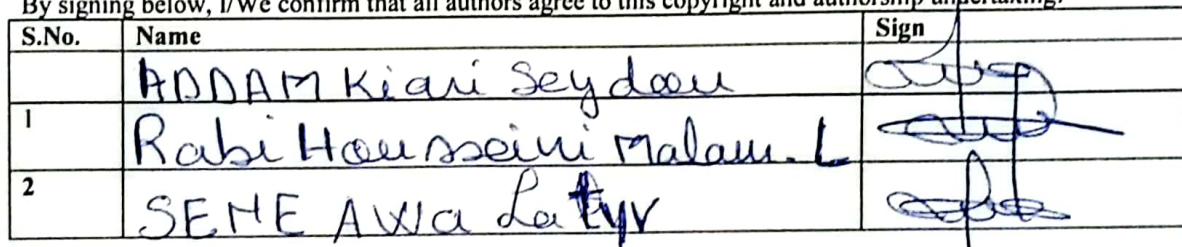 By signing below, I/We confirm that all authors agree to this copyright and authorship undertaking.
S.No. Name Sign
ADDAM Kiari Seydou
1 Rabi Housseini Malam. L
2 SEME AWa Latyr